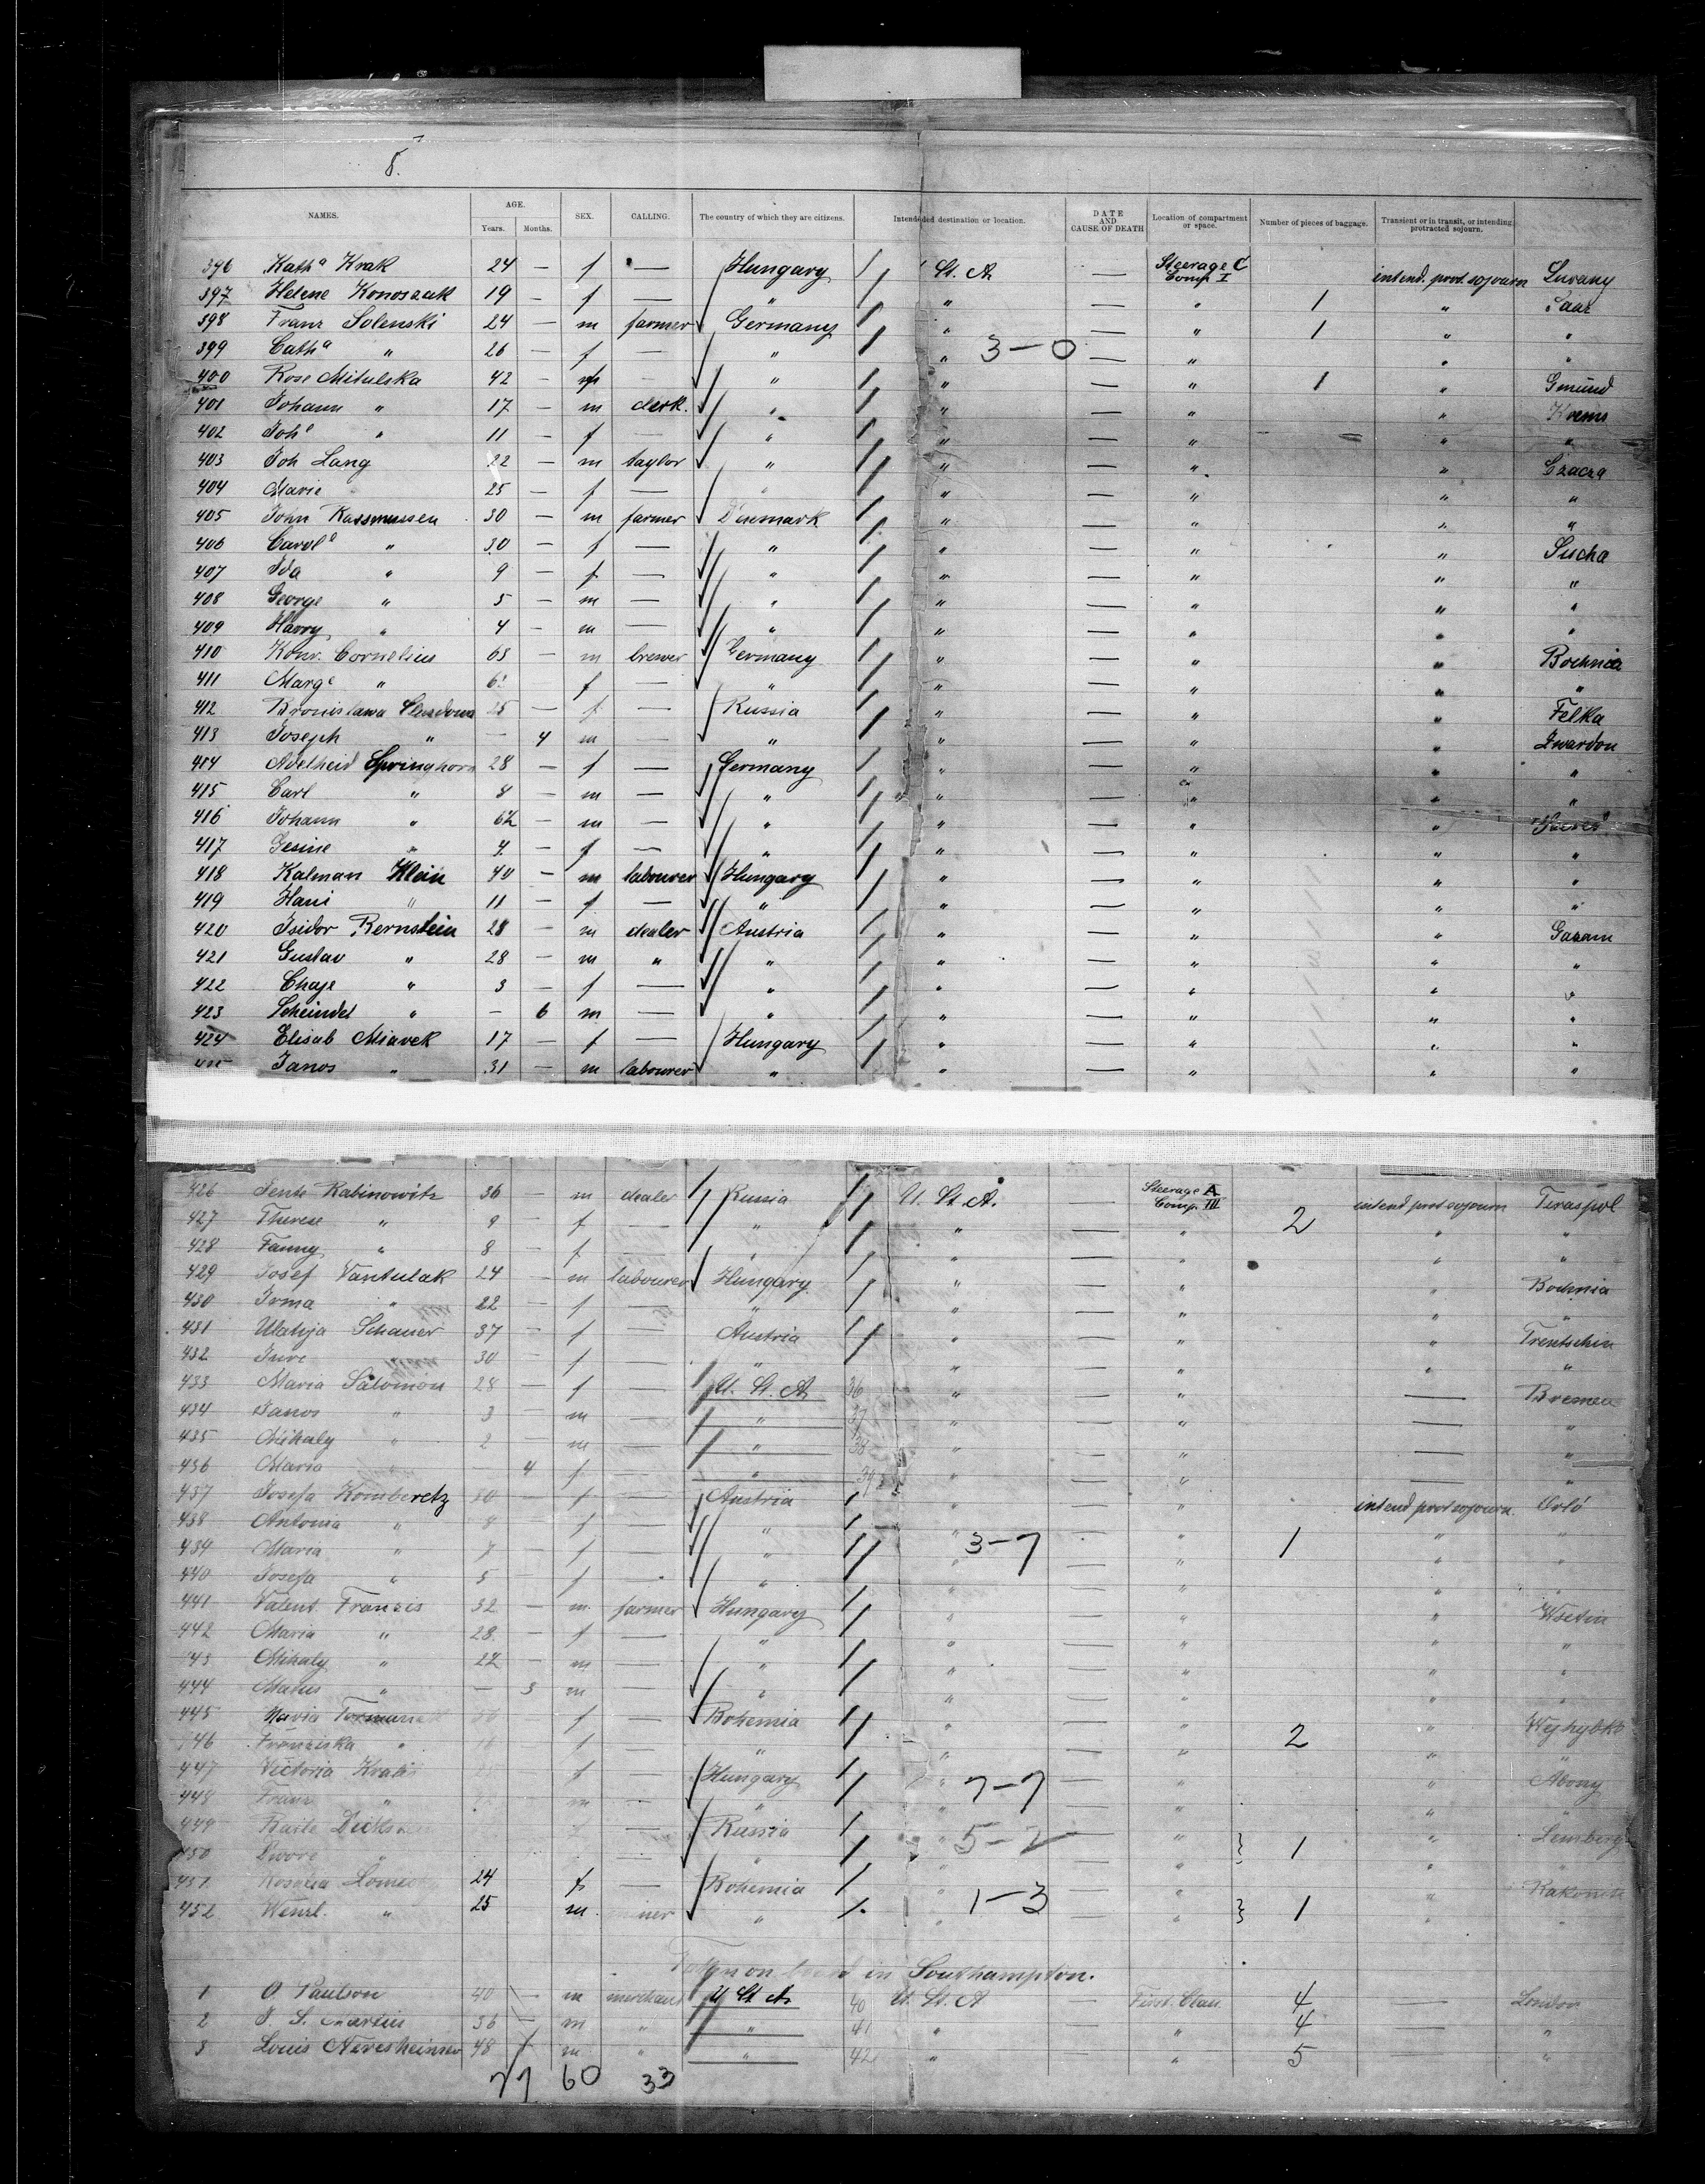 8.
NAMES. AGE. Years. Months. SEX. CALLING. The country of which they are citizens. Intended destination or location. DATE AND CAUSE OF DEATH Location of compartment or space. Number of pieces of baggage. Transient or in transit, or intending protracted sojourn.
396 Kath.a Krak 24 — f — Hungary St. A — Steerage C Comp. I intend. prot. sojourn
397 Helene Konoszak 19 — f — " " — " 1 " Saar
398 Franz Solenski 24 — m farmer Germany " — " 1 " "
399 Cath.a " 26 — f — " " 3-0 — " " "
400 Rose Mitulska 42 — f — " " — " 1 " Gmünd
401 Johann " 17 — m clerk. " " — " " Krems
402 Joh.e " 11 — f — " " — " " "
403 Joh Lang 22 — m taylor " " — " " Czacza
404 Marie 25 — f — " " — " " "
405 John Rassmussen 30 — m farmer Denmark " — " " "
406 Carol.e " 30 — f — " " — " " Sucha
407 Ida " 9 — f — " " — " " "
408 George " 5 — m — " " — " " "
409 Harry " 4 — m — " " — " " "
410 Konr. Cornelius 63 — m brewer Germany " — " " Bochnia
411 Marg.e " f — " " — " " "
412 Bronislawa 25 — f — Russia " — " " Felka
413 Joseph " — 4 m — " " — " " Zwardon
414 Adelheid Springhorn 28 — f — Germany " — " " "
415 Carl " 8 — m — " " — " " "
416 Johann " 6½ — m — " " — " "
417 Gesine " 4 — f — " " — " " "
418 Kalman Klein 40 — m labourer Hungary " — " " "
419 Hani " 11 — f — " " — " " "
420 Isidor Bernstein 28 — m dealer Austria " — " "
421 Gustav " 28 — m " " " — " " "
422 Chaje " 3 — f — " " — " " "
423 Scheindel " — 6 m — " " — " " "
424 Elisab Miavek 17 — f — Hungary " — " " "
Janos " 31 — m labourer " " — " " "
426 Rabinowitz 36 — m dealer Russia U. St. A. — Steerage A Comp. III intend prot sojourn Tiraspol
427 Therese " 9 — f — " " — " 2 " "
428 Fanny " 8 — f — " " — " " "
429 Josef Vantulak 24 — m labourer Hungary " — " " Bochnia
430 Irma " 22 — f — " " — " " "
431 Schauer 37 — f — Austria " — " " Trentschin
432 30 — f — " " — " " "
433 Maria Salomon 28 — f — U. St. A. 36 " — " — Bremen
434 Janos " 3 — m — " 37 " — " — "
435 Mihaly " 2 — m — " 38 " — " — "
436 Maria " — 4 f — " 39 " — " — "
437 Josefa Komberetz 30 — f — Austria " — " intend prot sojourn. Orló
438 Antonia " 8 — f — " " — " 1 " "
439 Maria " 7 — f — " " 3-7 — " " "
440 Josefa " 5 — f — " " — " " "
441 Valent. Franzis 32 — m farmer Hungary " — " " Wsetin
442 Maria " 28 — f — " " — " " "
443 Mihaly " 22 — m — " " — " " "
444 " — 3 m — " " — " " "
445 Maria f — Bohemia " — "
446 Franziska " f — " " — " 2 " "
447 Victoria f — Hungary " 7-7 — " " Abony
448 Franz " m — " " — " " "
449 — Russia " 5-2 — " " Lemberg
450 " — " " — " 1 " "
451 Rosalia 24 f — Bohemia " — " "
452 Wenzl. " 25 m. " " 1-3 — " 1 " "
Taken on board in Southampton.
1 O. Paulson 40 — m merchant U St A. 40 U. St. A — First Class. 4 — London
2 36 — m " " 41 " — " 4 — "
3 Louis Neresheimer 48 m " " 42 " — " 5 — "
77 60 33